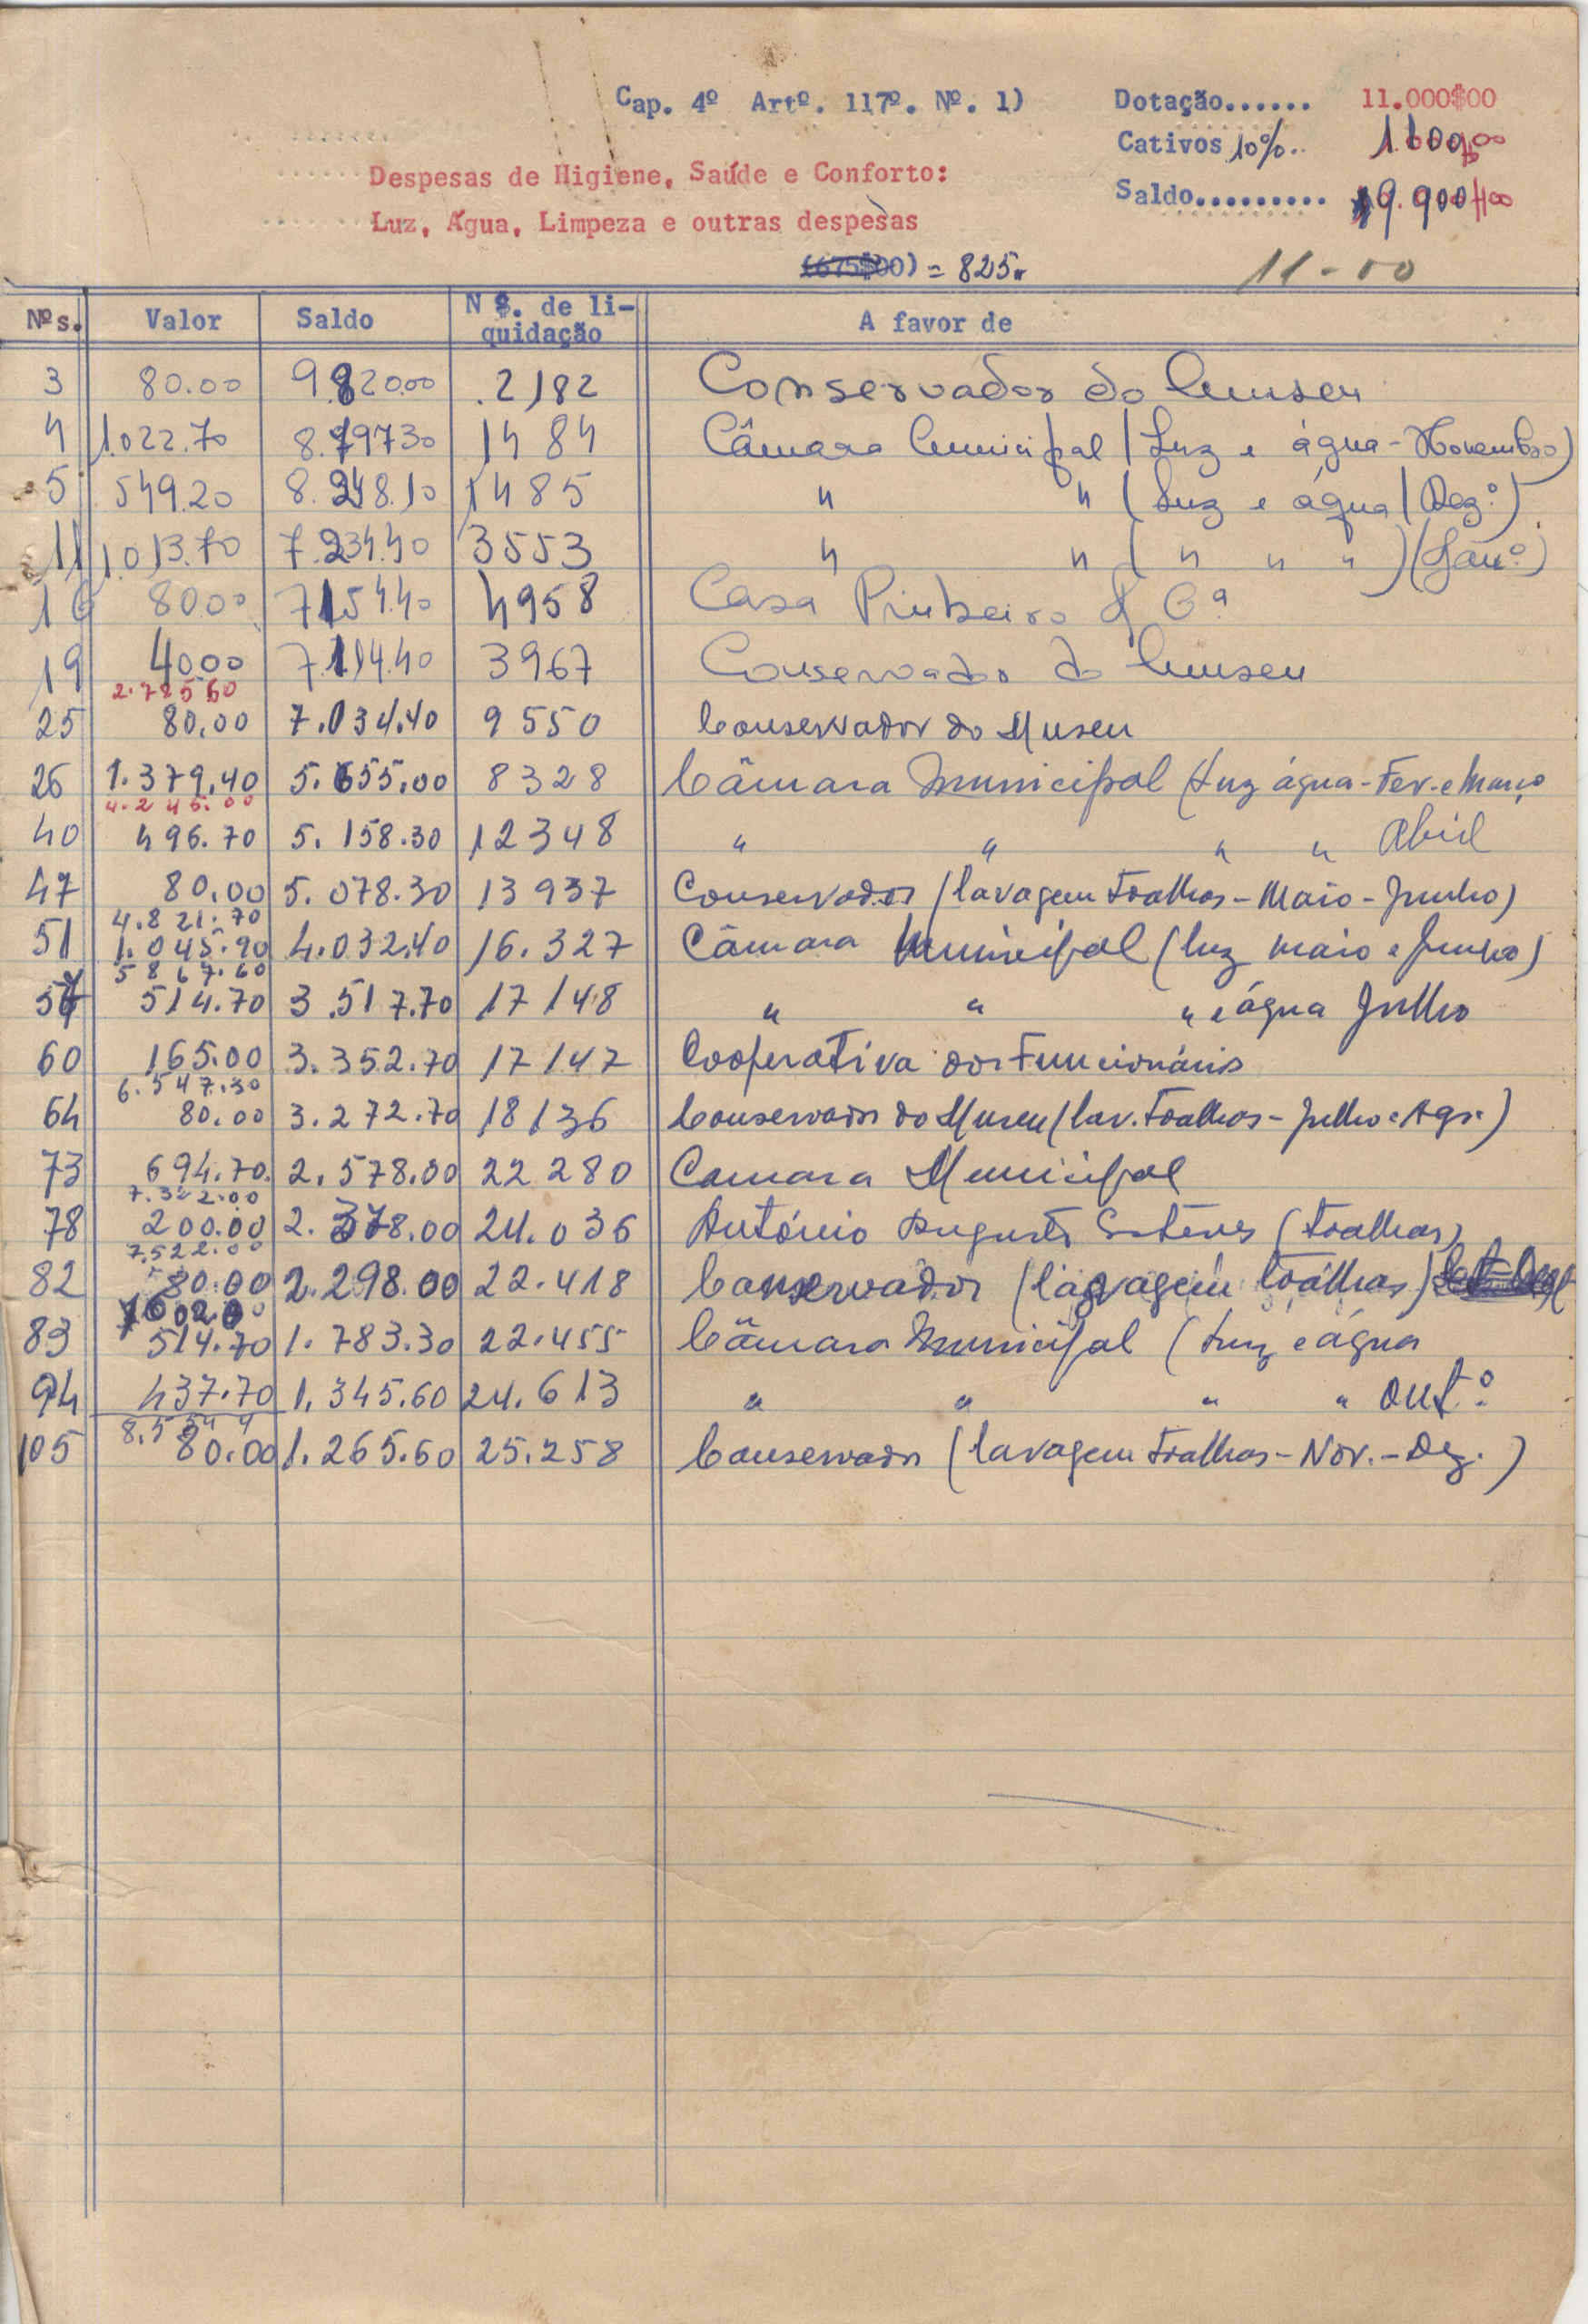 Cap. 4º Artº. 117º. Nº. 1) Dotação...... 11.000$00
Cativos 10%.. 1100$00
Despesas de Higiene, Saúde e Conforto:
Saldo......... 9.900$00
Luz, Água, Limpeza e outras despesas
(675$00) = 825. 11-00
Nºs. Valor Saldo Nº. de li-quidação A favor de
3 80.00 9.820.00 2182 Conservador do Museu
4 1.022.70 8.797.30 1484 Câmara Municipal (Luz e água - Novembro)
5 549.20 8.248.10 1485 " " (Luz e água (Dezº.)
11 1.013.70 7.234.40 3553 " " ( " " " ) (Janº.)
16 80.00 7.154.40 4958 Casa Pinheiro & Cª
19 40.00 7.114.40 3967 Conservador do Museu
2.785 60
25 80.00 7.034.40 9550 Conservador do Museu
26 1.379.40 5.655.00 8328 Câmara Municipal (Luz água - Fev. e Março
4.245.00
40 496.70 5.158.30 12348 " " " " Abril
47 80.00 5.078.30 13937 Conservador (lavagem Toalhas - Maio - Junho)
4.821.70
51 1.045.90 4.032.40 16.327 Câmara Municipal (luz maio e Junho)
5 867.60
57 514.70 3.517.70 17148 " " " e água Julho
60 165.00 3.352.70 17147 Cooperativa dos Funcionários
6.547.30
64 80.00 3.272.70 18136 Conservador do Museu (lav. Toalhas - Julho e Ags.)
73 694.70 2.578.00 22280 Camara Municipal
7.322.00
78 200.00 2.378.00 24.036 António Augusto Esteves (Toalhas)
7.522.00
82 80.00 2.298.00 22.418 Conservador (lavagem toalhas)
83 514.70 1.783.30 22.455 Câmara Municipal (Luz e água
94 437.70 1.345.60 24.613 " " " " Outº.
105 80.00 1.265.60 25.258 Conservador (lavagem Toalhas - Nov. - Dez.)